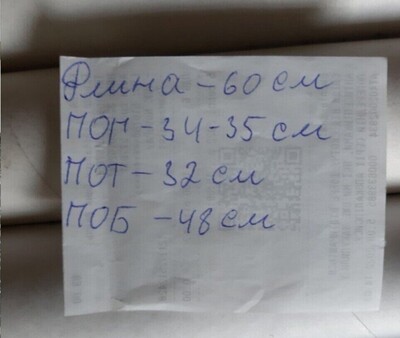 Длина - 60 см
ПОГ - 34-35 см
ПОТ - 32 см
ПОБ - 48 см